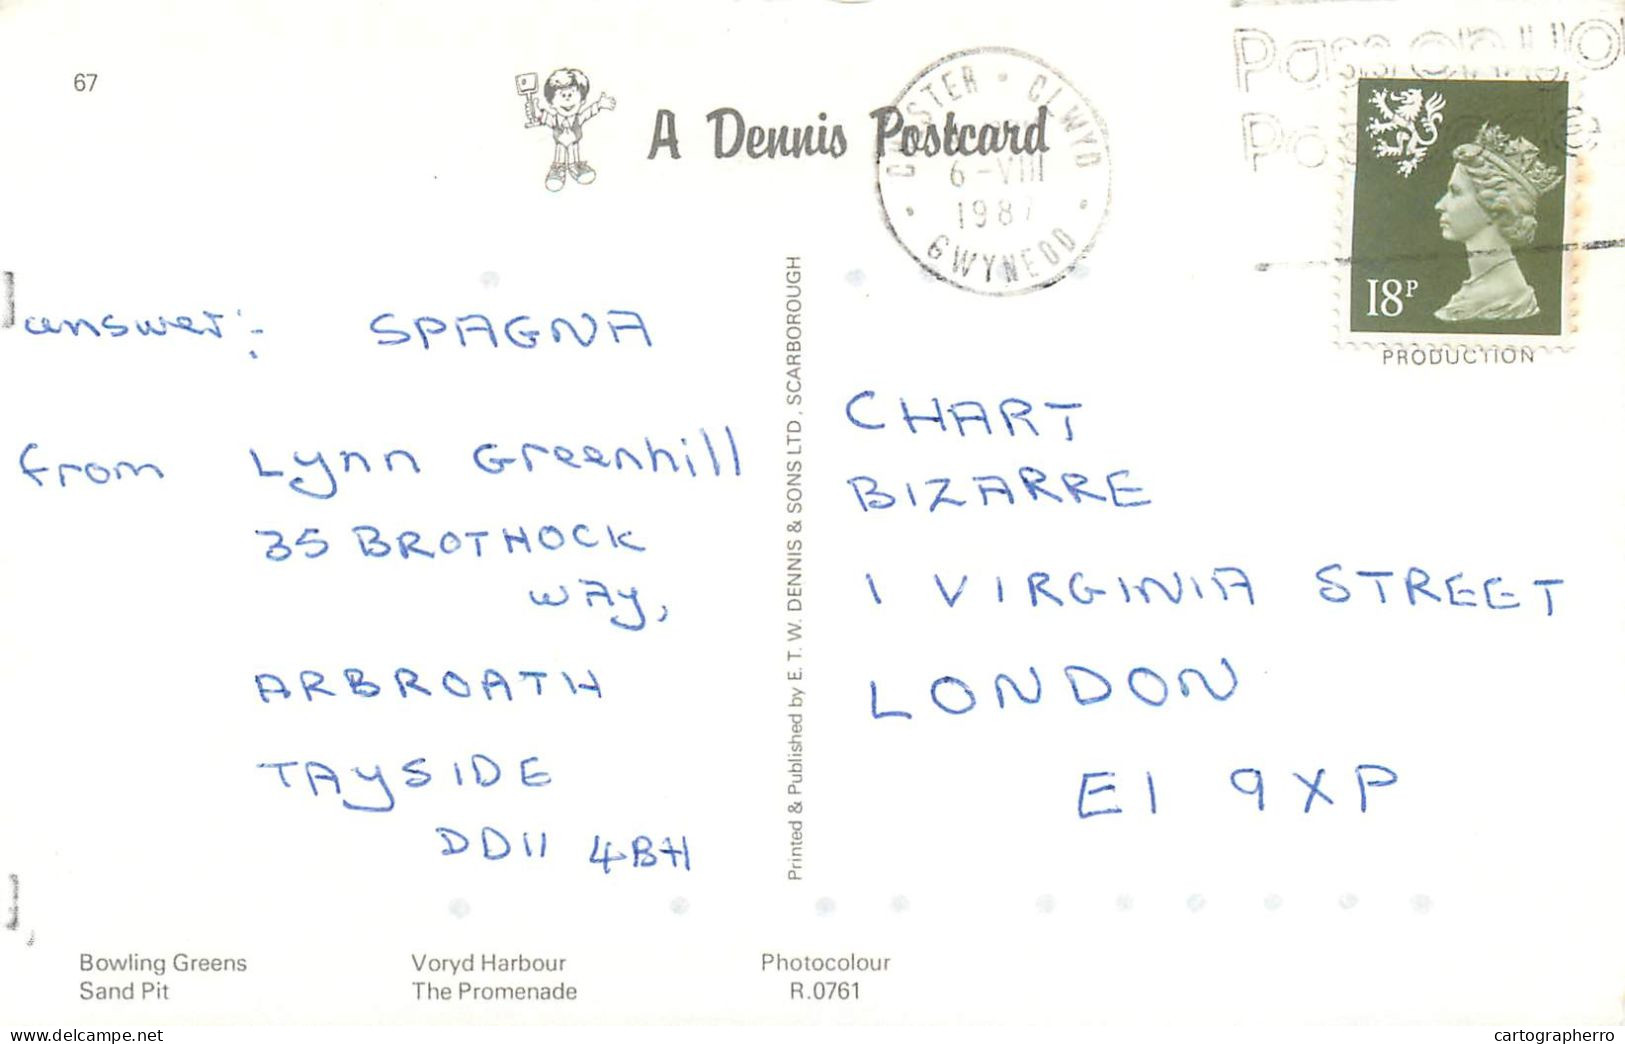 67
A Dennis Postcard
CHESTER · CLWYD
6 -VIII
1987
GWYNEDD
Pass on
18P
PRODUCTION
answer:- SPAGNA
from Lynn Greenhill
35 BROTHOCK
WAy,
ARBROATH
TAySIDE
DD11 4BH
Printed & Published by E. T. W. DENNIS & SONS LTD., SCARBOROUGH
CHART
BIZARRE
1 VIRGINIA STREET
LONDON
E1 9XP
Bowling Greens
Sand Pit
Voryd Harbour
The Promenade
Photocolour
R.0761
cartographerro